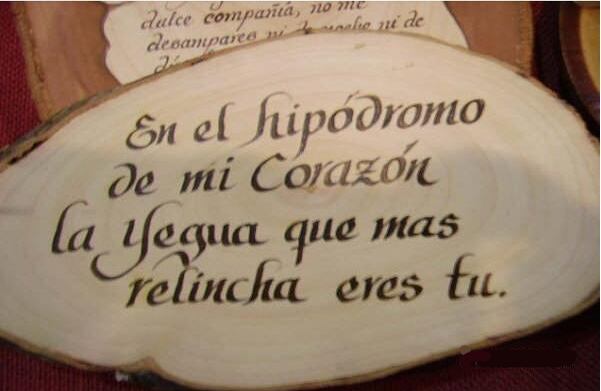 dulce compañía, no me
desampares ni de noche ni de
En el hipódromo
de mi Corazón
la Yegua que mas
relincha eres tu.